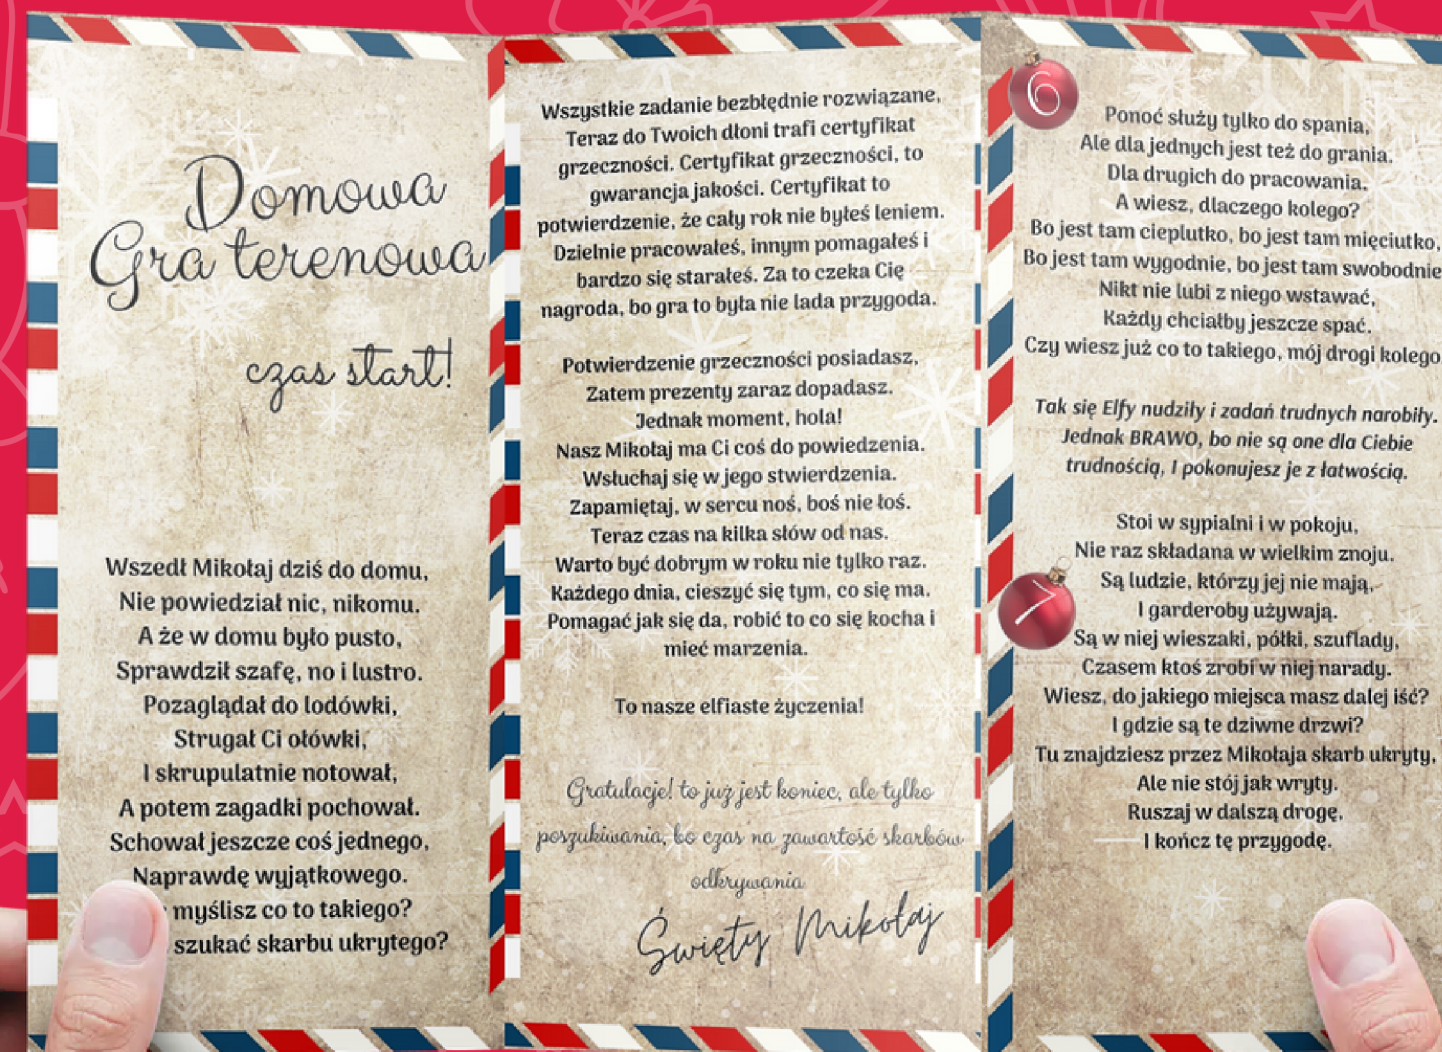 Domowa
Gra terenowa
czas start!
Wszedł Mikołaj dziś do domu,
Nie powiedział nic, nikomu.
A że w domu było pusto,
Sprawdził szafę, no i lustro.
Pozaglądał do lodówki,
Strugał Ci ołówki,
I skrupulatnie notował,
A potem zagadki pochował.
Schował jeszcze coś jednego,
Naprawdę wyjątkowego.
myślisz co to takiego?
szukać skarbu ukrytego?
Wszystkie zadanie bezbłędnie rozwiązane,
Teraz do Twoich dłoni trafi certyfikat
grzeczności. Certyfikat grzeczności, to
gwarancja jakości. Certyfikat to
potwierdzenie, że cały rok nie byłeś leniem.
Dzielnie pracowałeś, innym pomagałeś i
bardzo się starałeś. Za to czeka Cię
nagroda, bo gra to była nie lada przygoda.
Potwierdzenie grzeczności posiadasz,
Zatem prezenty zaraz dopadasz.
Jednak moment, hola!
Nasz Mikołaj ma Ci coś do powiedzenia.
Wsłuchaj się w jego stwierdzenia.
Zapamiętaj, w sercu noś, boś nie łoś.
Teraz czas na kilka słów od nas.
Warto być dobrym w roku nie tylko raz.
Każdego dnia, cieszyć się tym, co się ma.
Pomagać jak się da, robić to co się kocha i
mieć marzenia.
To nasze elfiaste życzenia!
Gratulacje! to już jest koniec, ale tylko
poszukiwania, bo czas na zawartość skarbów
odkrywania
Święty Mikołaj
6
Ponoć służy tylko do spania,
Ale dla jednych jest też do grania.
Dla drugich do pracowania,
A wiesz, dlaczego kolego?
Bo jest tam cieplutko, bo jest tam mięciutko,
Bo jest tam wygodnie, bo jest tam swobodnie
Nikt nie lubi z niego wstawać,
Każdy chciałby jeszcze spać.
Czy wiesz już co to takiego, mój drogi kolego
Tak się Elfy nudziły i zadań trudnych narobiły.
Jednak BRAWO, bo nie są one dla Ciebie
trudnością, I pokonujesz je z łatwością.
7
Stoi w sypialni i w pokoju,
Nie raz składana w wielkim znoju.
Są ludzie, którzy jej nie mają,
I garderoby używają.
Są w niej wieszaki, półki, szuflady,
Czasem ktoś zrobi w niej narady.
Wiesz, do jakiego miejsca masz dalej iść?
I gdzie są te dziwne drzwi?
Tu znajdziesz przez Mikołaja skarb ukryty,
Ale nie stój jak wryty.
Ruszaj w dalszą drogę,
I kończ tę przygodę.